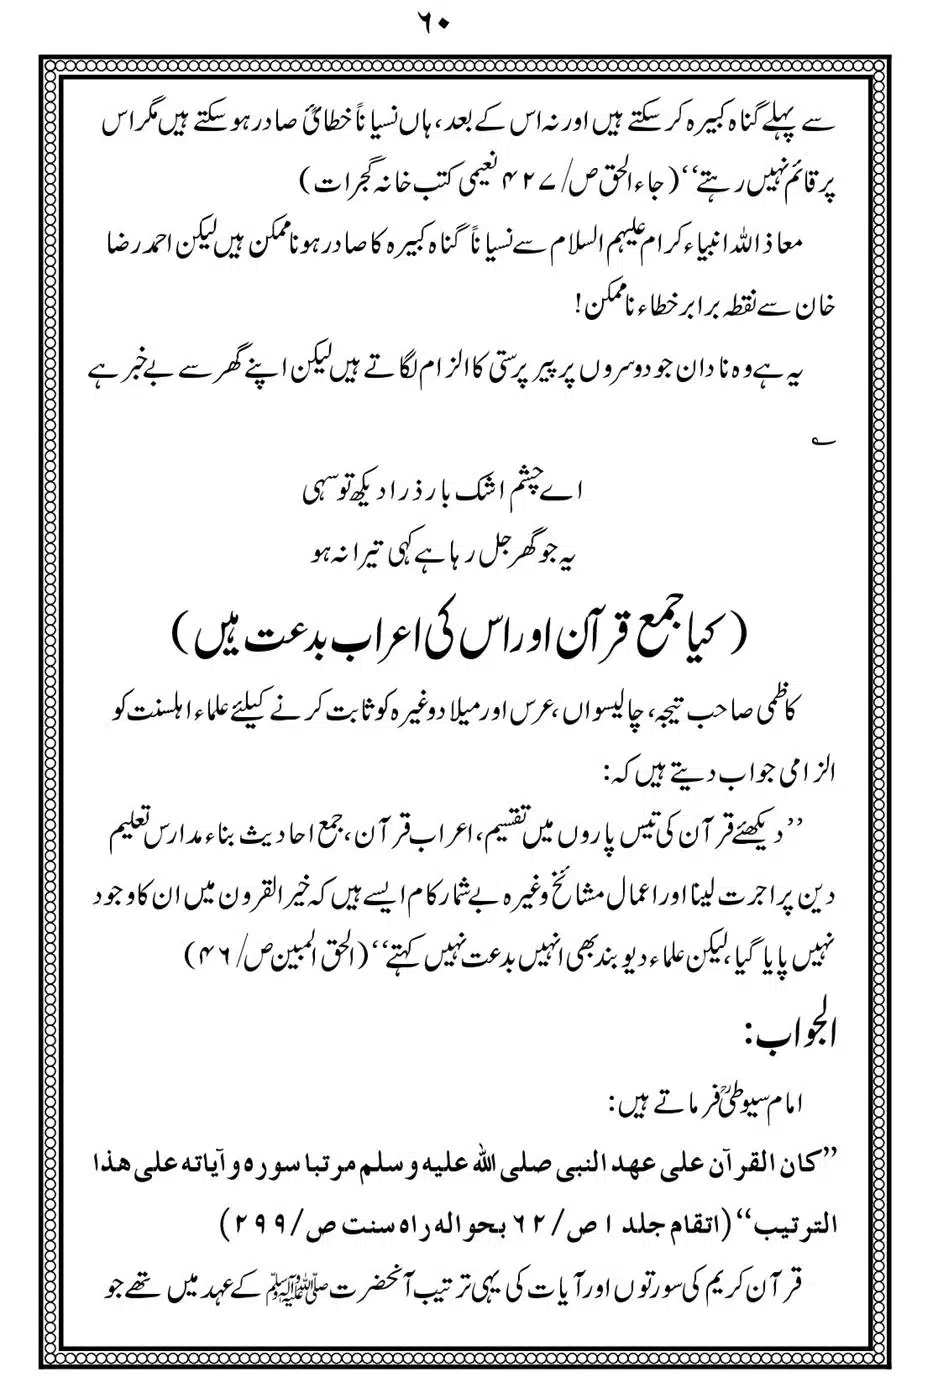 ۶۰
سے پہلے گناہ کبیرہ کر سکتے ہیں اور نہ اس کے بعد، ہاں نسیاناً خطائ صادر ہو سکتے ہیں مگر اس
پر قائم نہیں رہتے‘‘ (جاء الحق ص/۴۲۷ نعیمی کتب خانہ گجرات)
معاذ اللہ انبیاء کرام علیہم السلام سے نسیاناً گناہ کبیرہ کا صادر ہونا ممکن ہیں لیکن احمد رضا
خان سے نقطہ برابر خطاء ناممکن!
یہ ہے وہ نادان جو دوسروں پر پیر پرستی کا الزام لگاتے ہیں لیکن اپنے گھر سے بے خبر ہے
؎
اے چشم اشک بار ذرا دیکھ تو سہی
یہ جو گھر جل رہا ہے کہی تیرا نہ ہو
(کیا جمع قرآن اور اس کی اعراب بدعت ہیں)
کاظمی صاحب تیجہ، چالیسواں، عرس اور میلاد وغیرہ کو ثابت کرنے کیلئے علماء اہلسنت کو
الزامی جواب دیتے ہیں کہ:
’’دیکھئے قرآن کی تیس پاروں میں تقسیم، اعراب قرآن، جمع احادیث بناء مدارس تعلیم
دین پر اجرت لینا اور اعمال مشائخ وغیرہ بے شمار کام ایسے ہیں کہ خیر القرون میں ان کا وجود
نہیں پایا گیا، لیکن علماء دیوبند بھی انہیں بدعت نہیں کہتے‘‘ (الحق المبین ص/۴۶)
الجواب:
امام سیوطیؒ فرماتے ہیں:
’’کان القرآن علی عھد النبی صلی اللہ علیہ وسلم مرتبا سورہ و آیاتہ علی ھذا
الترتیب‘‘ (اتقام جلد ۱ ص/۶۲ بحوالہ راہ سنت ص/۲۹۹)
قرآن کریم کی سورتوں اور آیات کی یہی ترتیب آنحضرت ﷺ کے عہد میں تھے جو